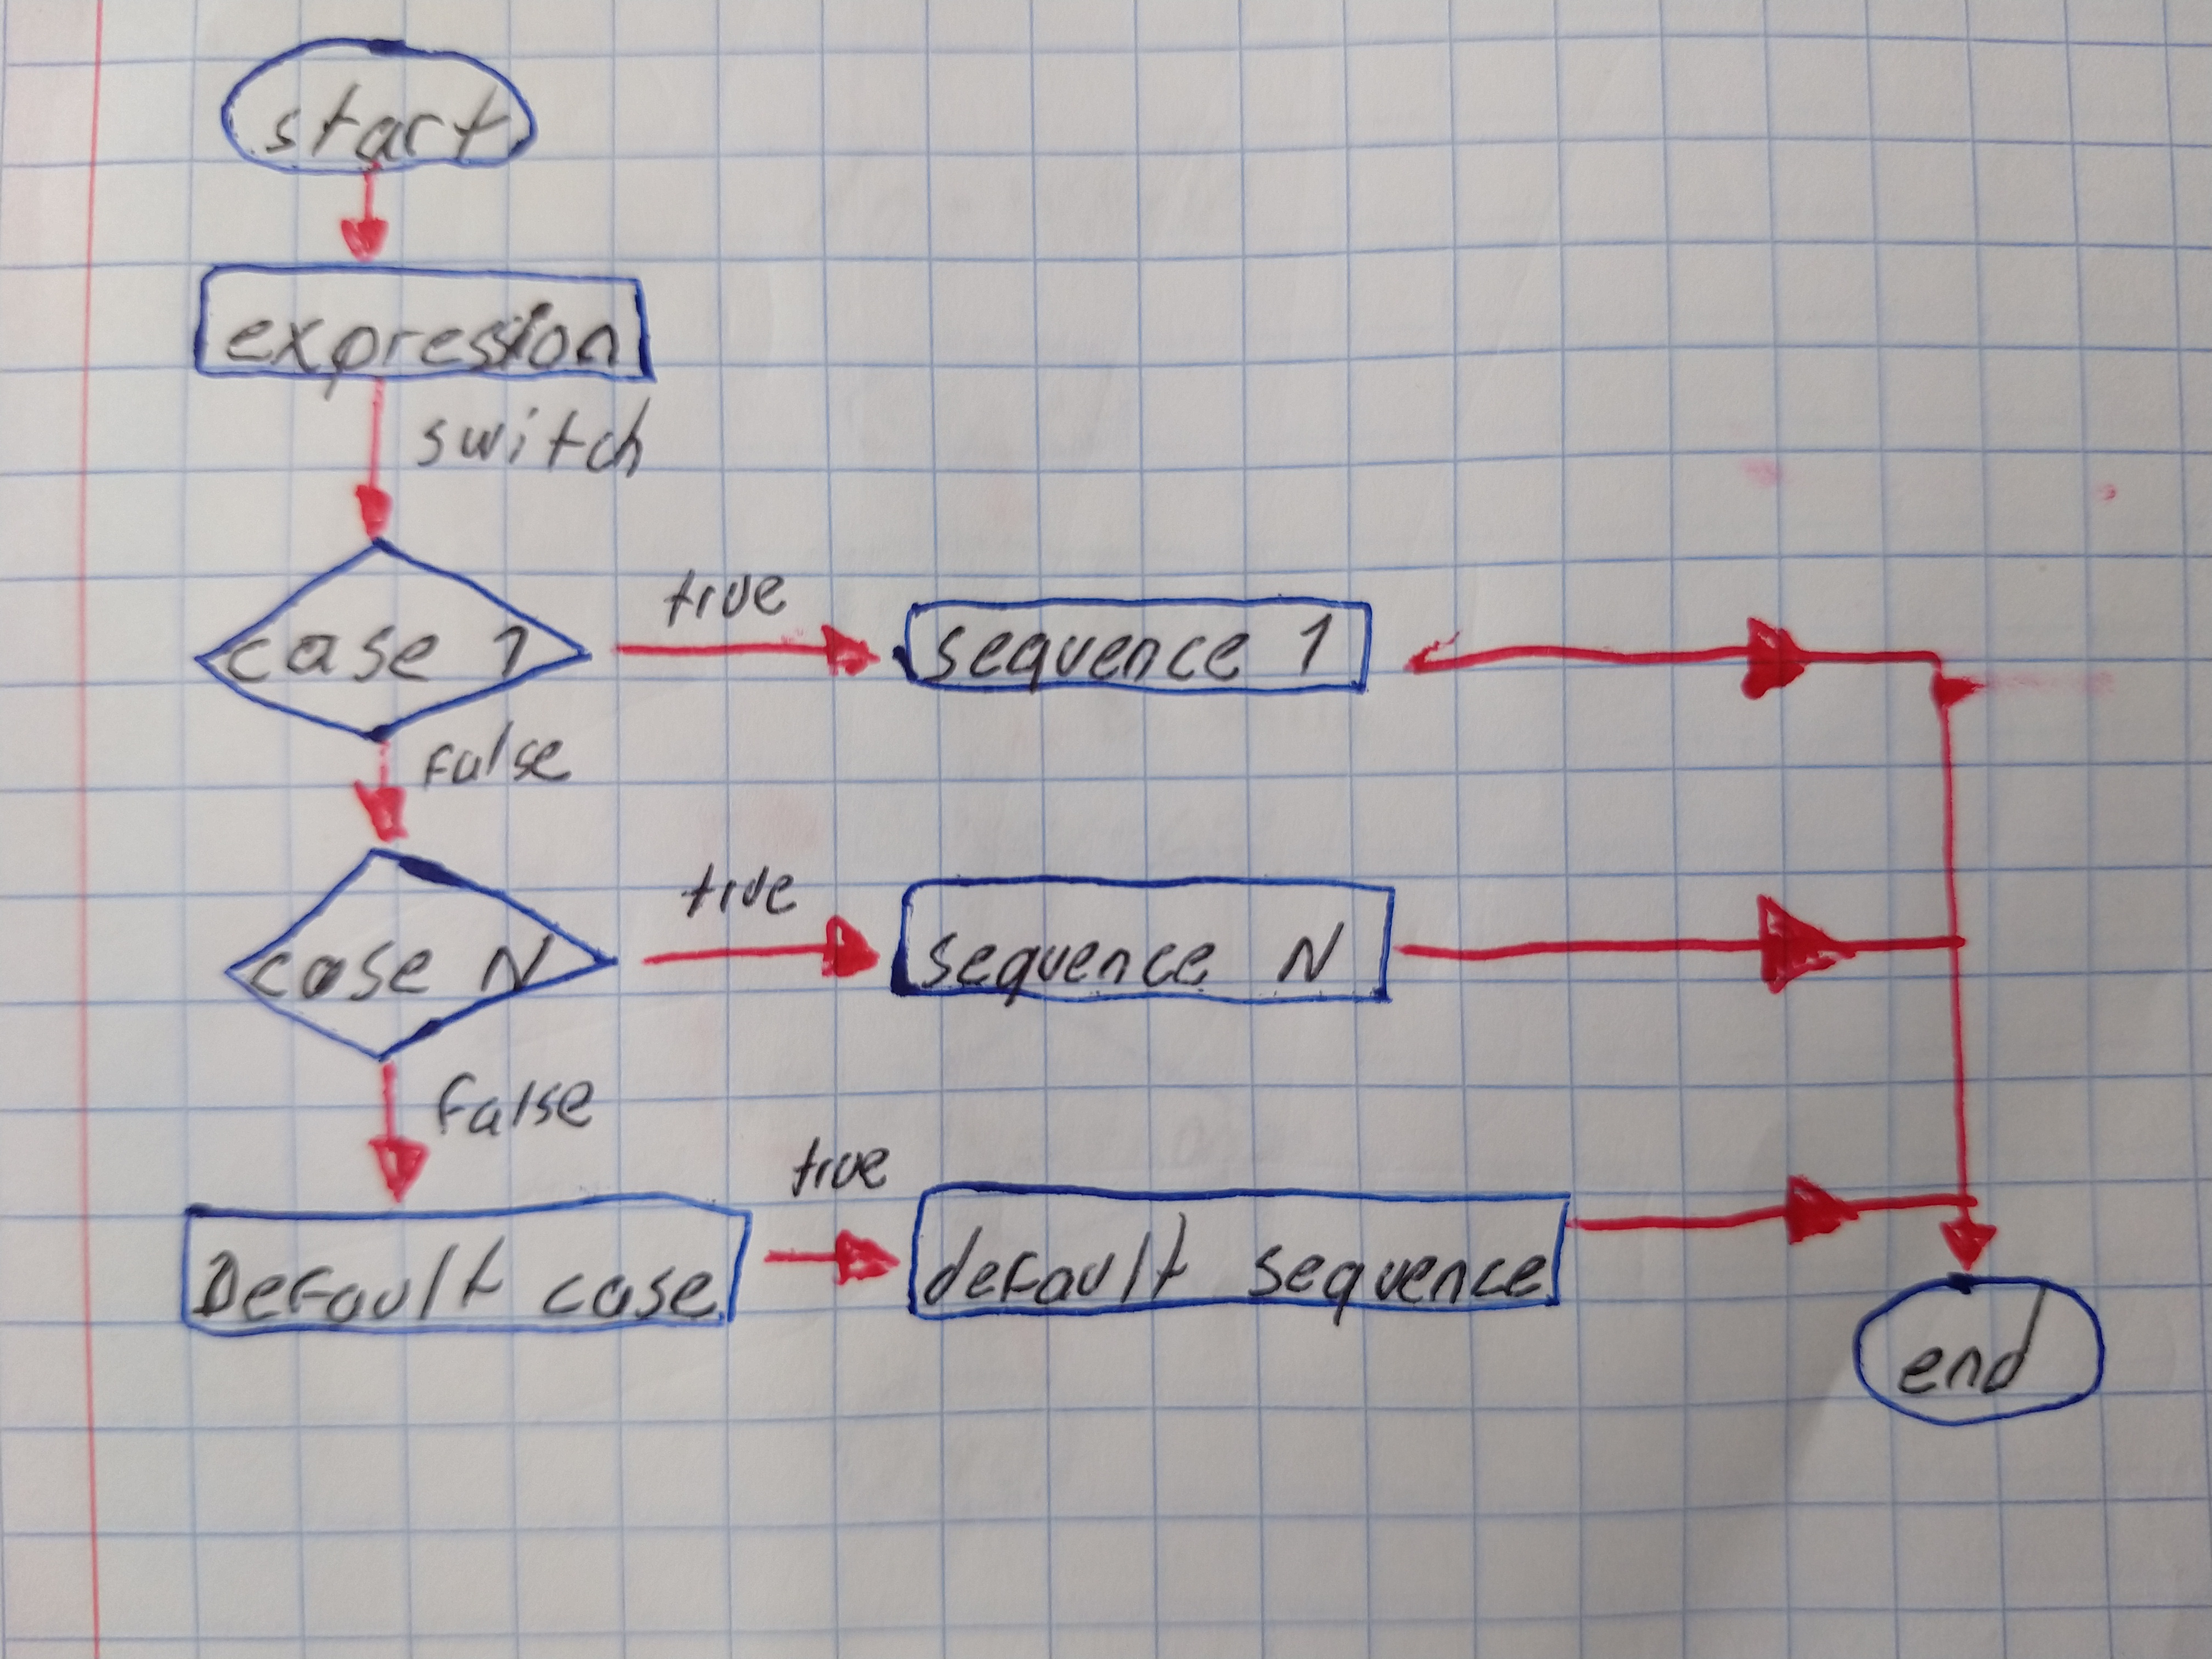 start
expression
switch
case 1
true
sequence 1
false
case N
true
sequence N
false
Default case
true
default sequence
end